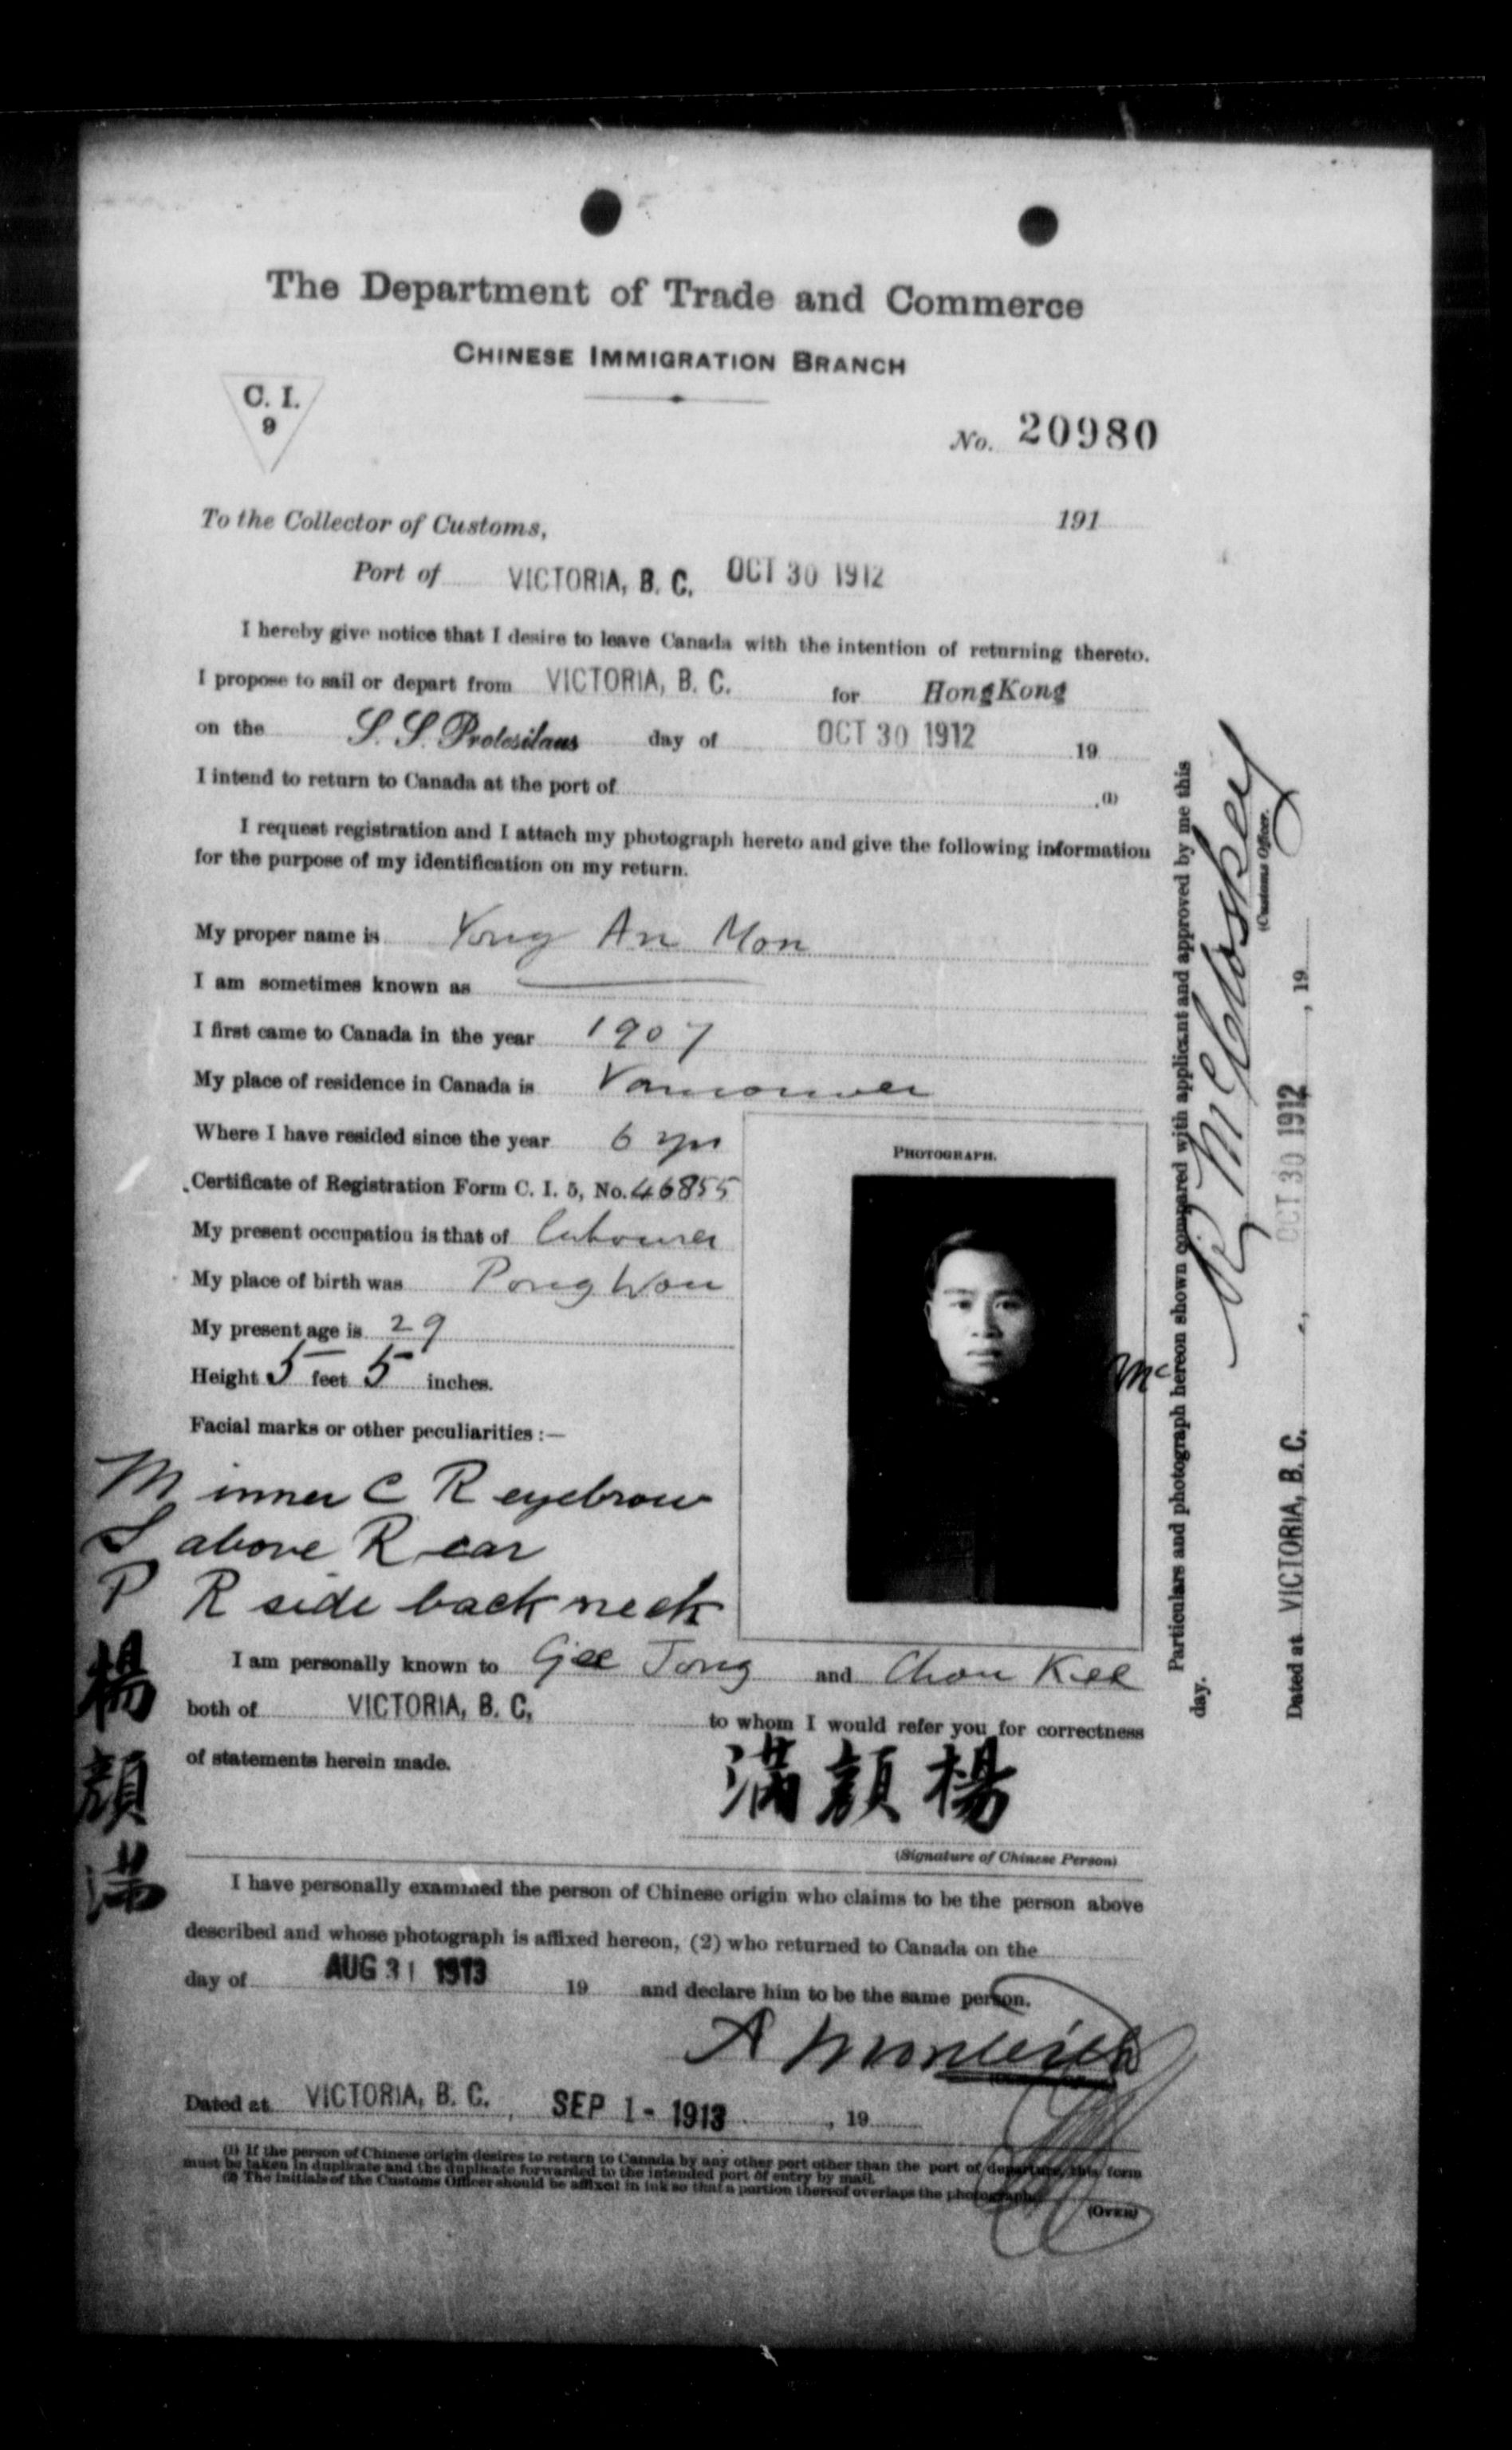 The Department of Trade and Commerce
CHINESE IMMIGRATION BRANCH
C. I.
9
No. 20980
To the Collector of Customs,
191
Port of VICTORIA, B. C. OCT 30 1912
I hereby give notice that I desire to leave Canada with the intention of returning thereto.
I propose to sail or depart from VICTORIA, B. C. for HongKong
on the S. S. Protesilaus day of OCT 30 1912 19
I intend to return to Canada at the port of (1)
I request registration and I attach my photograph hereto and give the following information
for the purpose of my identification on my return.
My proper name is Yong An Mon
I am sometimes known as
I first came to Canada in the year 1907
My place of residence in Canada is Vancouver
Where I have resided since the year 6 yrs
Certificate of Registration Form C. I. 5, No. 46855
My present occupation is that of labourer
My place of birth was Pong Won
My present age is 29
Height 5 feet 5 inches.
Facial marks or other peculiarities :—
M inner C R eyebrow
S above R ear
P R side back neck
PHOTOGRAPH.
Mc
I am personally known to Gee Tong and Chou Kee
both of VICTORIA, B. C. to whom I would refer you for correctness
of statements herein made.
楊顔滿
滿顔楊
(Signature of Chinese Person)
I have personally examined the person of Chinese origin who claims to be the person above
described and whose photograph is affixed hereon, (2) who returned to Canada on the
day of AUG 31 1913 19 and declare him to be the same person.
Dated at VICTORIA, B. C. , SEP 1 - 1913 , 19
(1) If the person of Chinese origin desires to return to Canada by any other port other than the port of departure, this form
must be taken in duplicate and the duplicate forwarded to the intended port of entry by mail.
(2) The initials of the Customs Officer should be affixed in ink so that a portion thereof overlaps the photograph.
(OVER)
Particulars and photograph hereon shown compared with applicant and approved by me this
day.
McCloskey
(Customs Officer.
Dated at VICTORIA, B. C. , OCT 30 1912 , 19